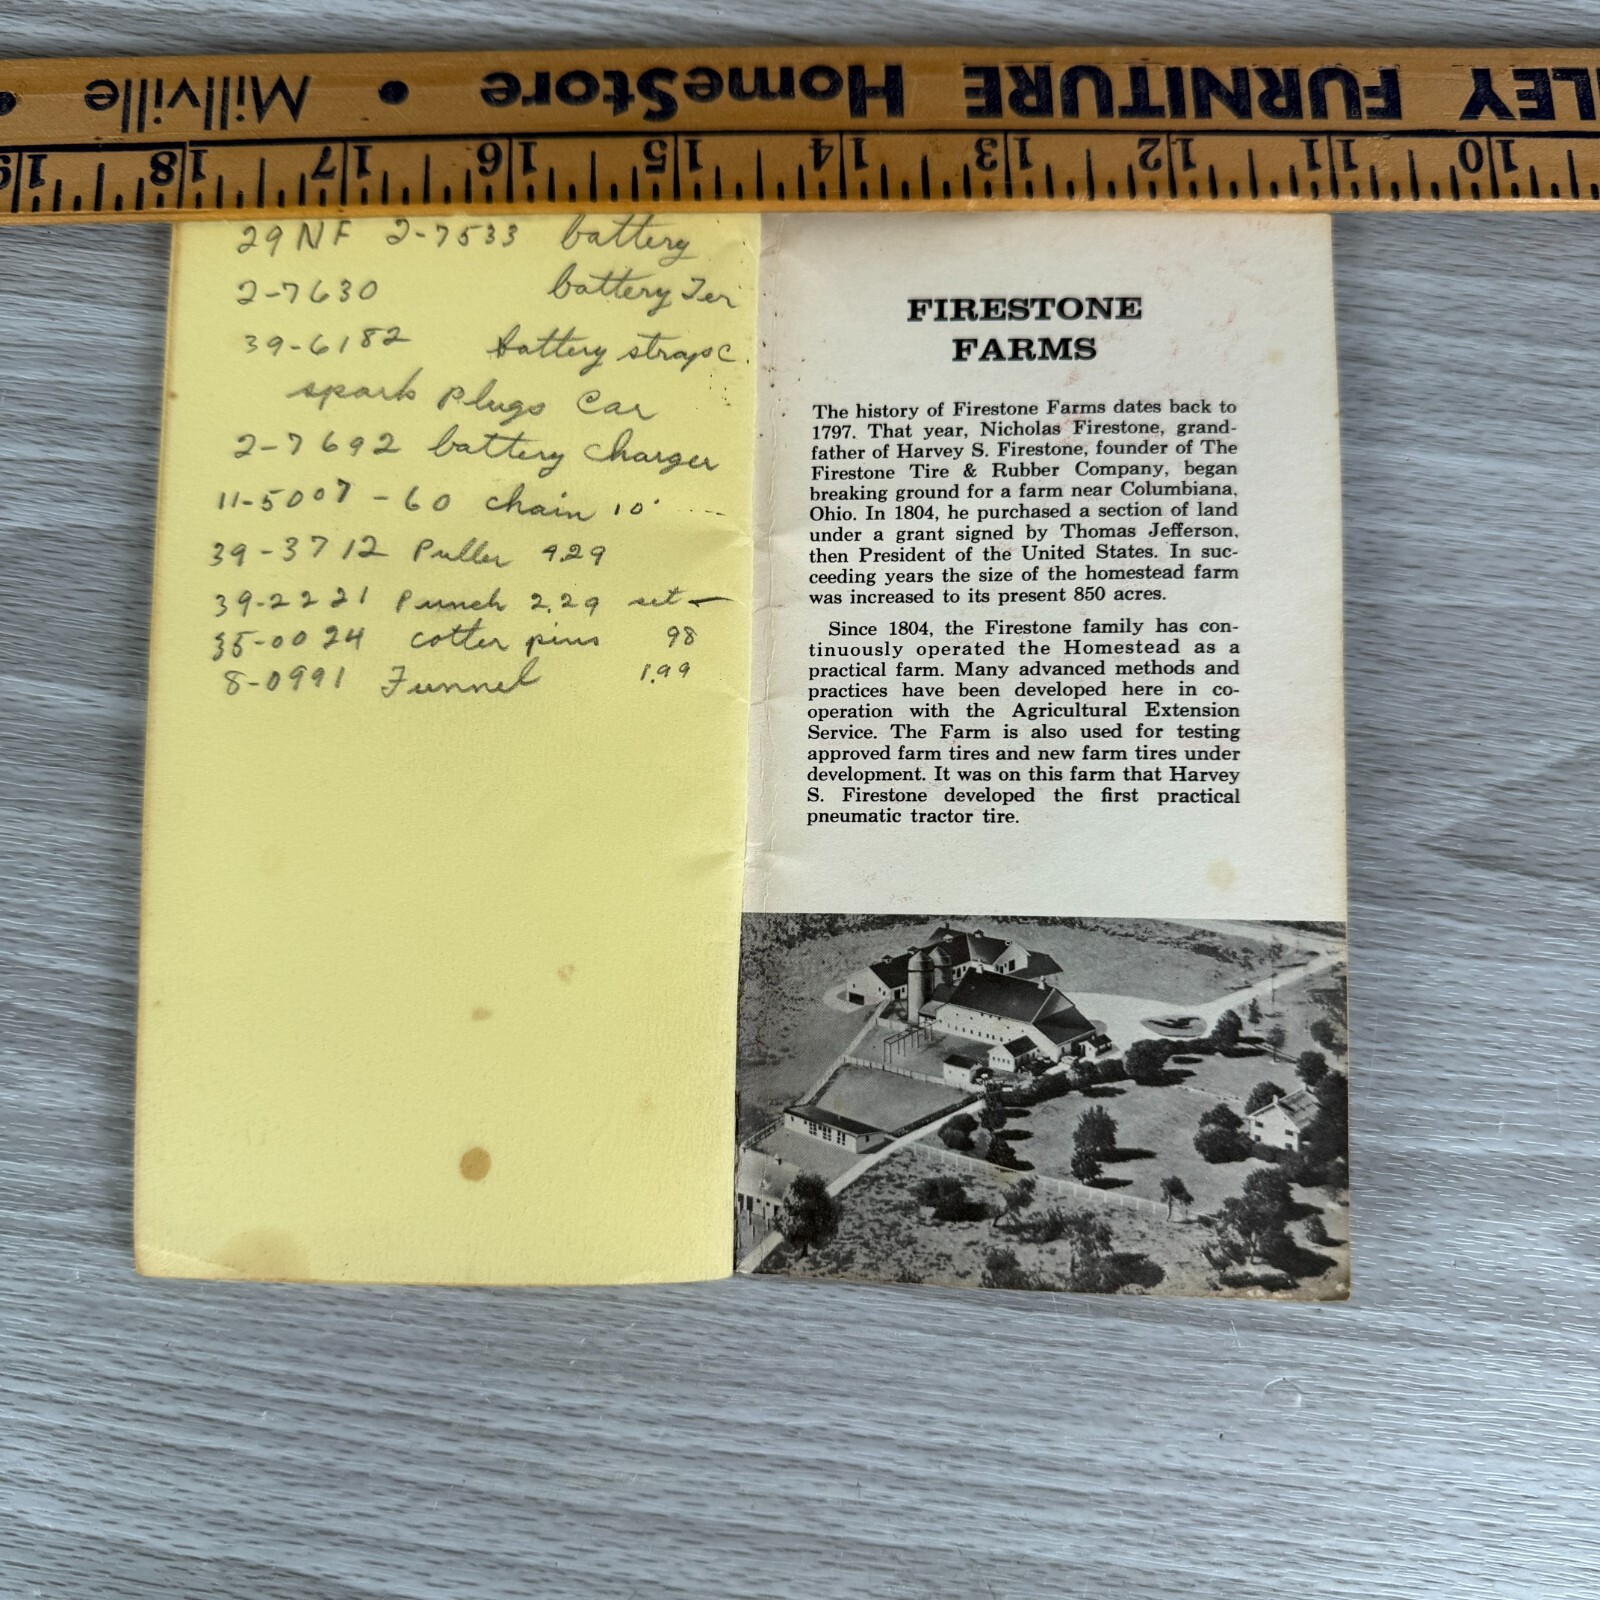 LEY FURNITURE HomeStore • Millville •
10 11 12 13 14 15 16 17 18 19
29NF 2-7533 battery
2-7630 battery Ter
39-6182 battery straps c.
spark plugs car
2-7692 battery charger
11-5007-60 chain 10'
39-3712 Puller 4.29
39-2221 Punch 2.29 set
35-0024 cotter pins 98
8-0991 Funnel 1.99
FIRESTONE
FARMS
The history of Firestone Farms dates back to
1797. That year, Nicholas Firestone, grand-
father of Harvey S. Firestone, founder of The
Firestone Tire & Rubber Company, began
breaking ground for a farm near Columbiana,
Ohio. In 1804, he purchased a section of land
under a grant signed by Thomas Jefferson,
then President of the United States. In suc-
ceeding years the size of the homestead farm
was increased to its present 850 acres.
Since 1804, the Firestone family has con-
tinuously operated the Homestead as a
practical farm. Many advanced methods and
practices have been developed here in co-
operation with the Agricultural Extension
Service. The Farm is also used for testing
approved farm tires and new farm tires under
development. It was on this farm that Harvey
S. Firestone developed the first practical
pneumatic tractor tire.